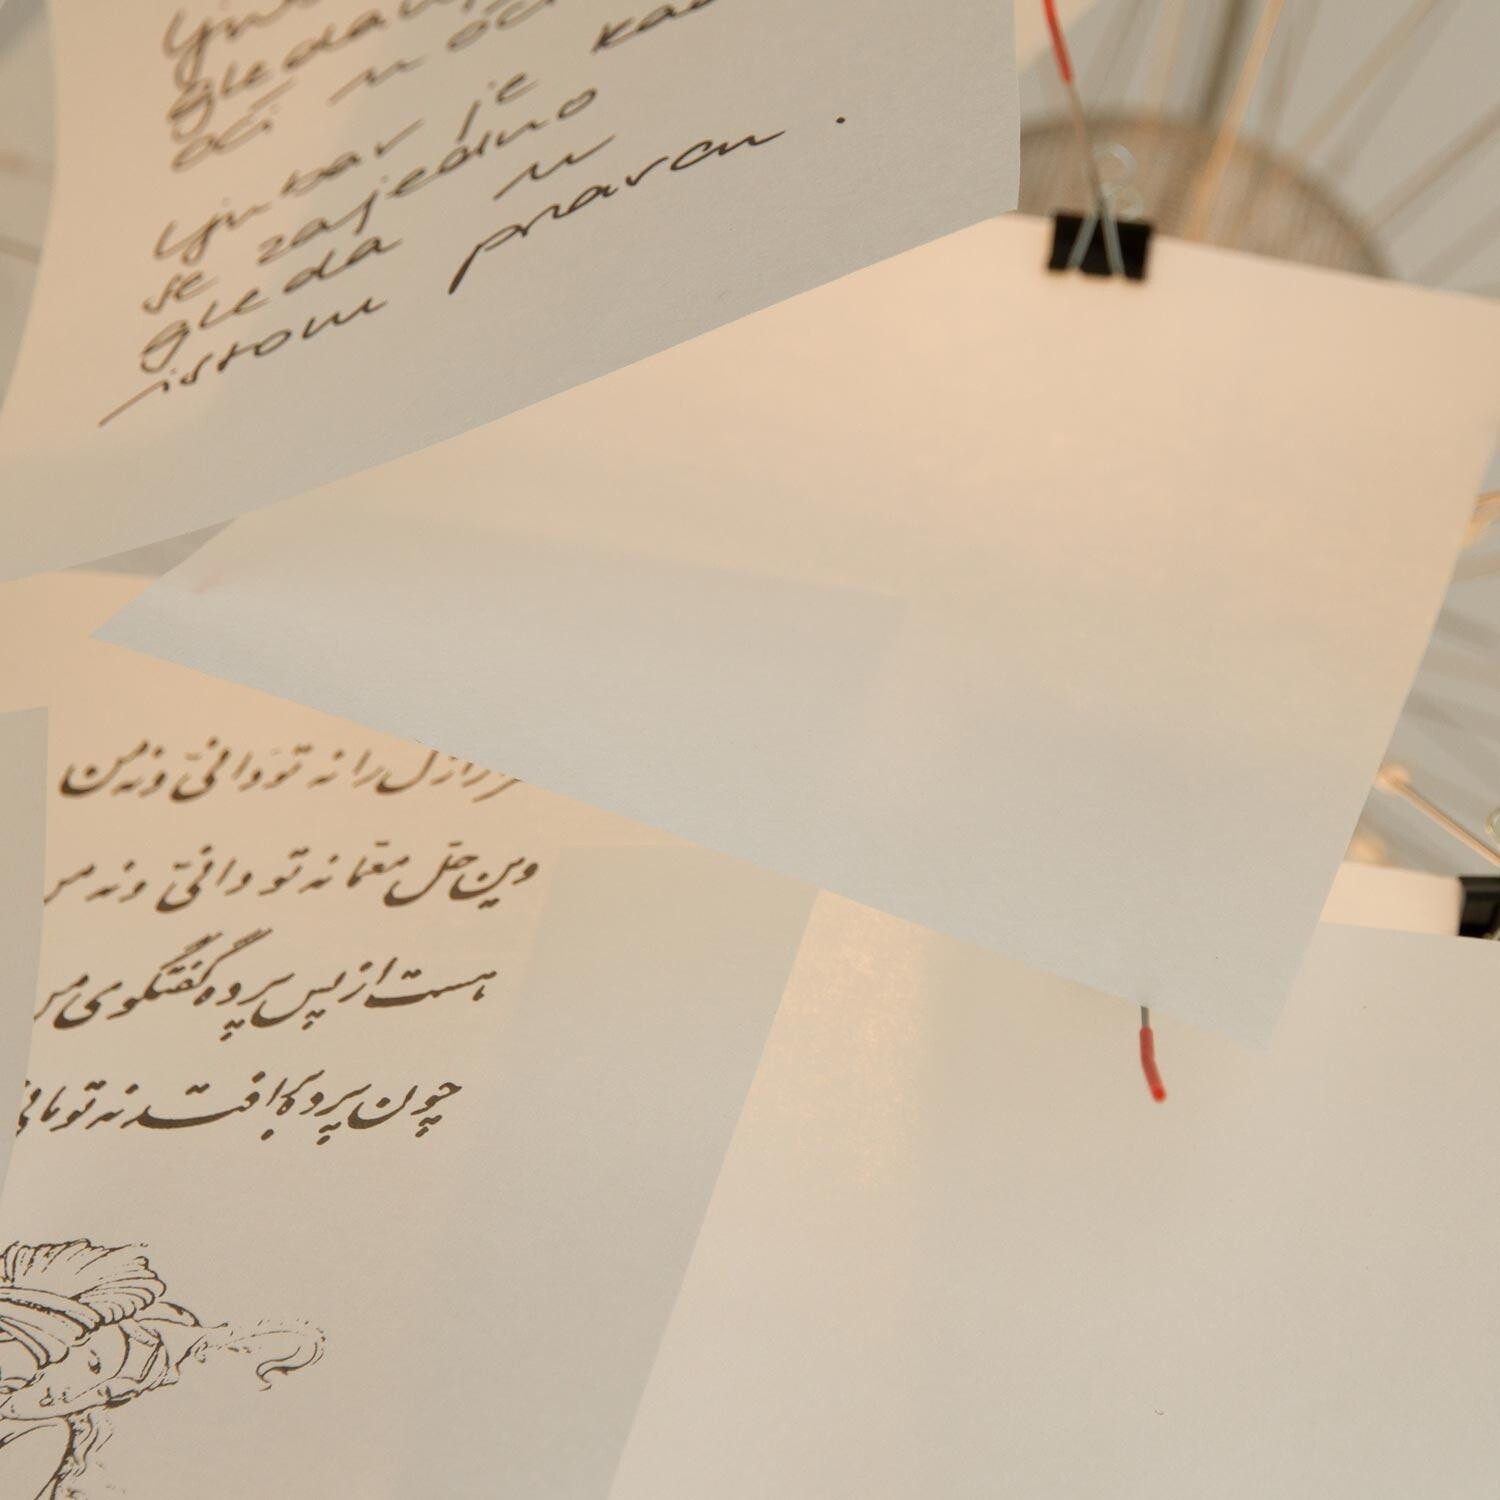 gleda
oči u oči
Ljubav je
se zajedno
gleda u
istom pravcu.
ازل را نه تو دانی و نه من
وین حل معما نه تو دانی و نه من
هست از پس پرده گفتگوی من
چون پرده برافتد نه تو مانی